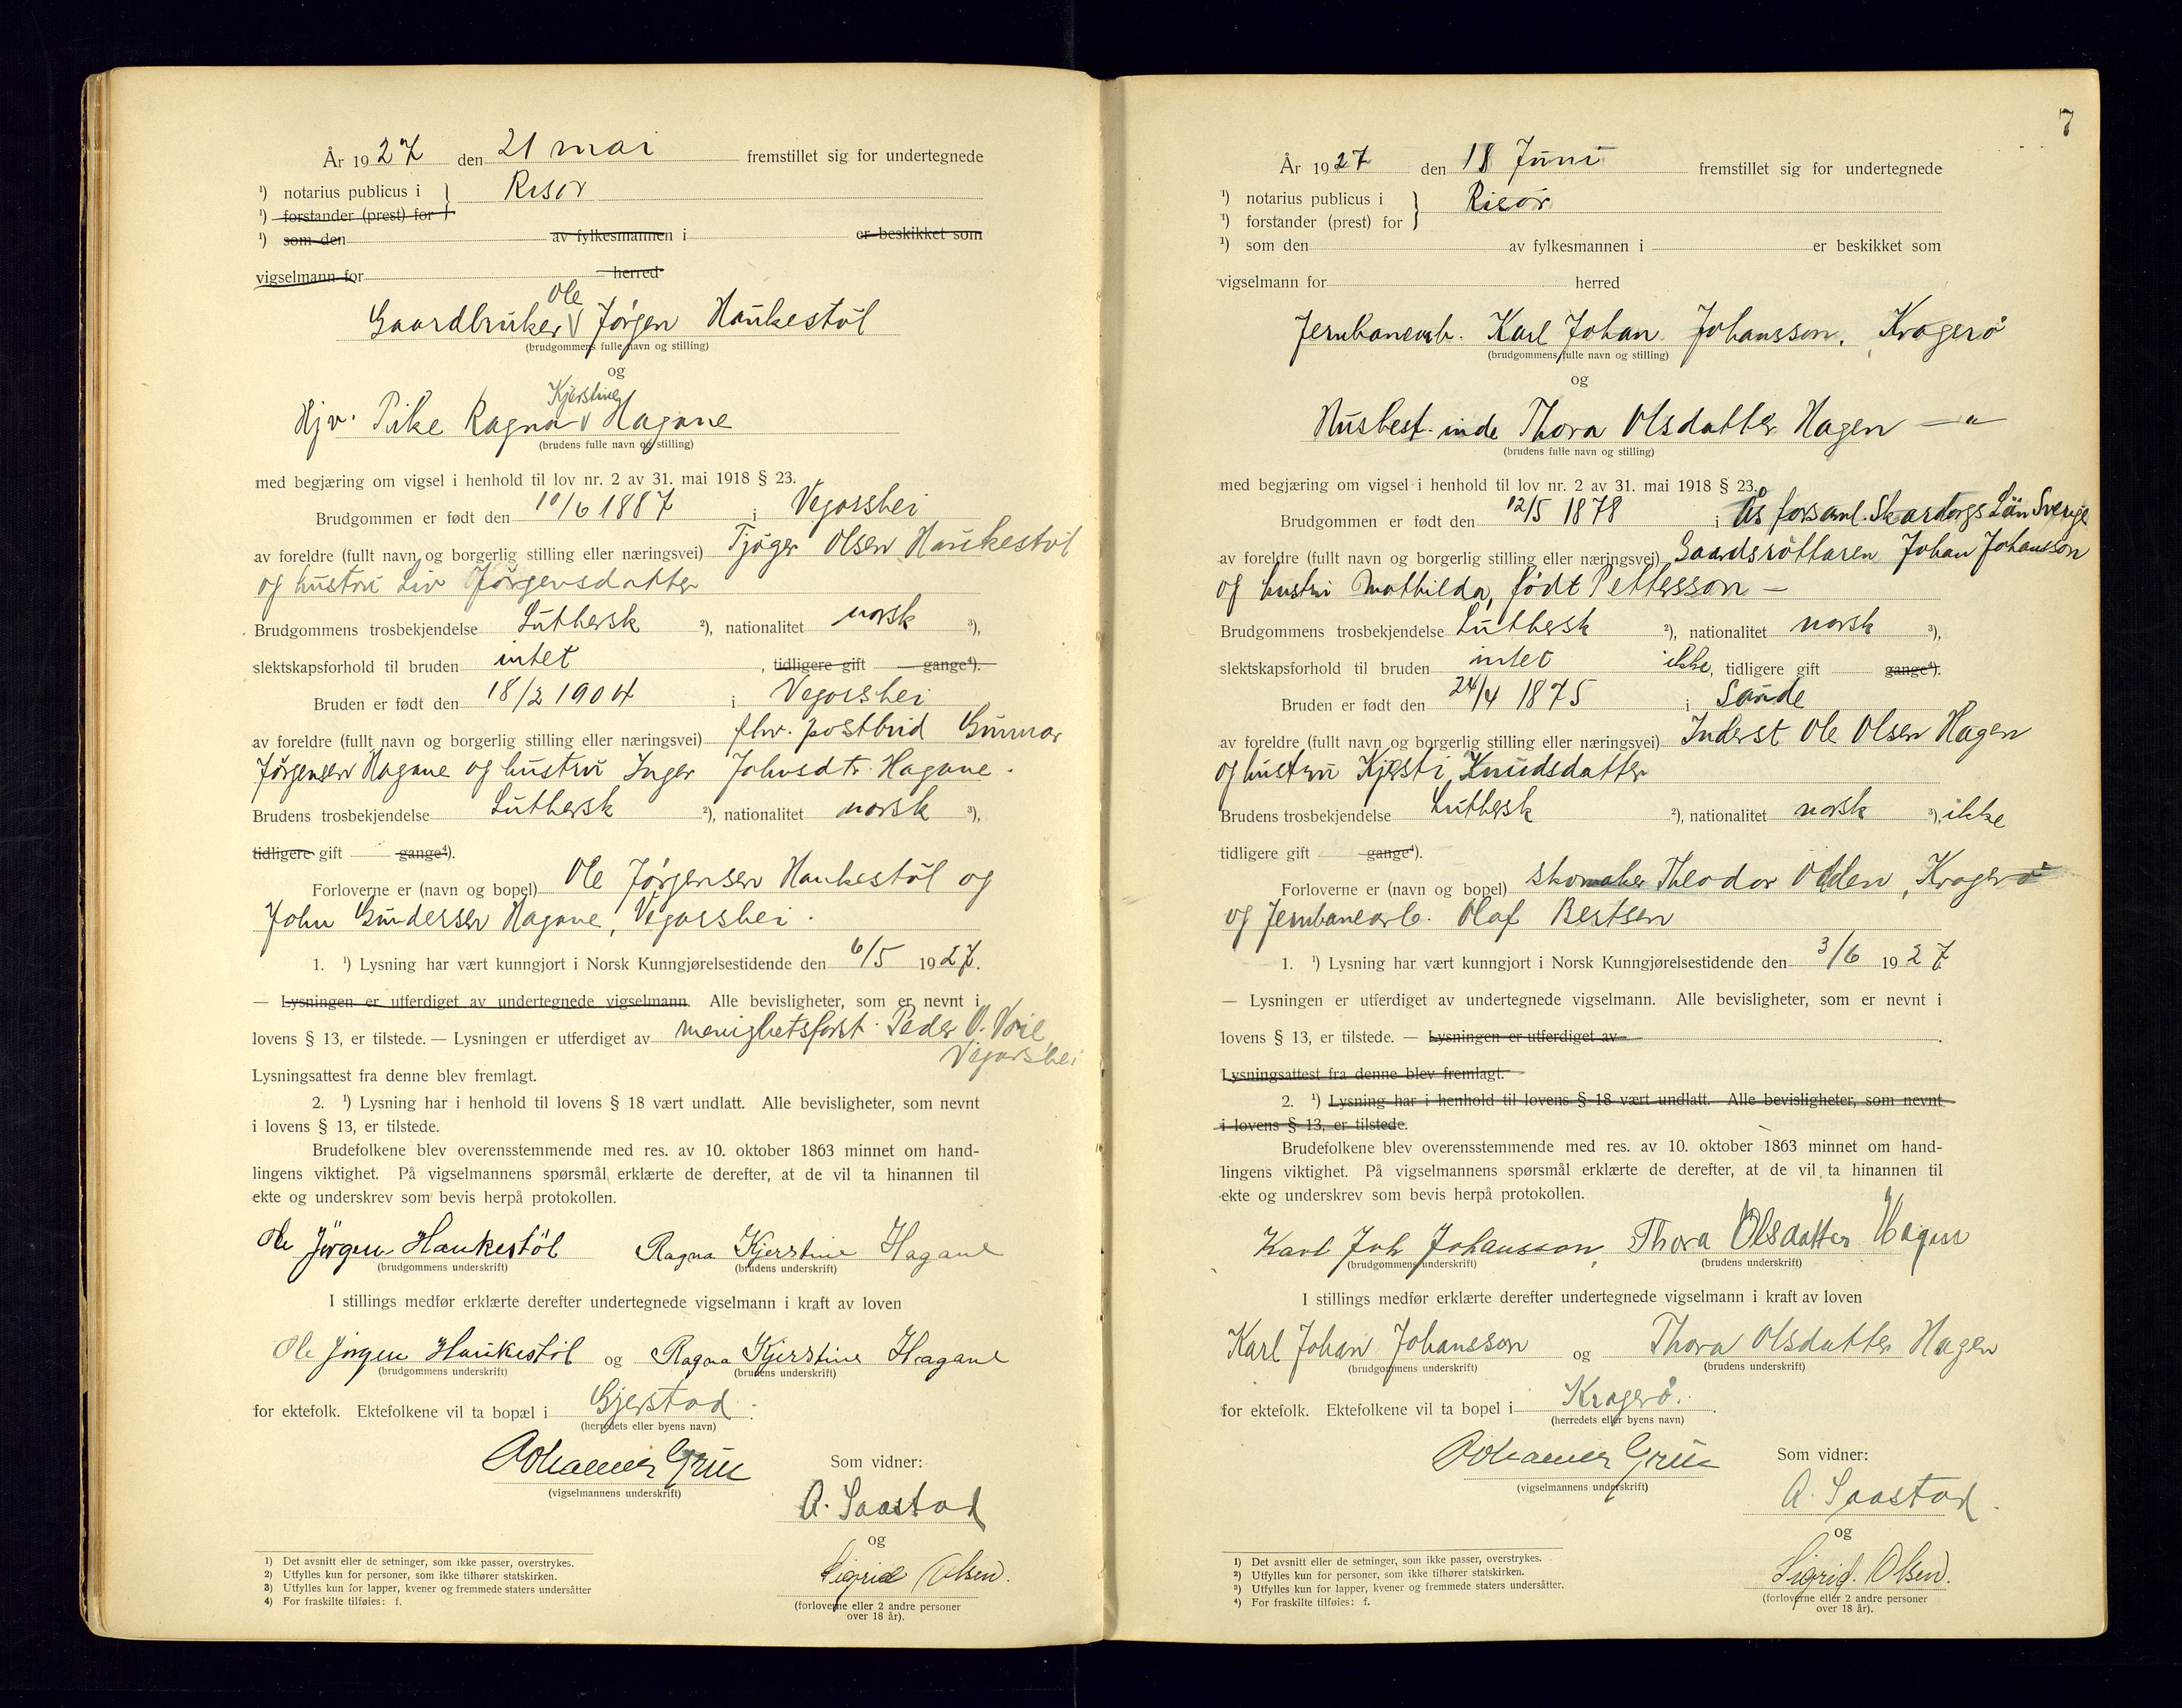 År 1927 den 21 mai fremstillet sig for undertegnede
¹) notarius publicus i } Risør
¹) forstander (prest) for
¹) som den av fylkesmannen i er beskikket som
vigselmann for herred
Ole
Gaardbruker V Jørgen Haukestøl
(brudgommens fulle navn og stilling)
og
Kjerstine
Hjv. Pike Ragna V Hagane
(brudens fulle navn og stilling)
med begjæring om vigsel i henhold til lov nr. 2 av 31. mai 1918 § 23.
Brudgommen er født den 10/6 1887 i Vegarshei
av foreldre (fullt navn og borgerlig stilling eller næringsvei) Tjøger Olsen Haukestøl
og hustru Liv Jørgensdatter
Brudgommens trosbekjendelse Luthersk ²), nationalitet norsk ³),
slektskapsforhold til bruden intet , tidligere gift gange⁴).
Bruden er født den 18/2 1904 i Vegarshei
av foreldre (fullt navn og borgerlig stilling eller næringsvei) fhv. postbud Gunnar
Jørgensen Hagane og hustru Inger Johnsdtr. Hagane.
Brudens trosbekjendelse Luthersk ²), nationalitet norsk ³),
tidligere gift gange⁴).
Forloverne er (navn og bopel) Ole Jørgensen Haukestøl og
John Gundersen Hagane, Vegarshei.
1. ¹) Lysning har vært kunngjort i Norsk Kunngjørelsestidende den 6/5 1927.
— Lysningen er utferdiget av undertegnede vigselmann. Alle bevisligheter, som er nevnt i
lovens § 13, er tilstede. — Lysningen er utferdiget av menighetsforst. Peder O. Voie
Vegarshei
Lysningsattest fra denne blev fremlagt.
2. ¹) Lysning har i henhold til lovens § 18 vært undlatt. Alle bevisligheter, som nevnt
i lovens § 13, er tilstede.
Brudefolkene blev overensstemmende med res. av 10. oktober 1863 minnet om hand-
lingens viktighet. På vigselmannens spørsmål erklærte de derefter, at de vil ta hinannen til
ekte og underskrev som bevis herpå protokollen.
Ole Jörgen Haukestøl Ragna Kjerstine Hagane
(brudgommens underskrift) (brudens underskrift)
I stillings medfør erklærte derefter undertegnede vigselmann i kraft av loven
Ole Jørgen Haukestøl og Ragna Kjerstine Hagane
(brudgommens underskrift) (brudens underskrift)
for ektefolk. Ektefolkene vil ta bopæl i Gjerstad.
(herredets eller byens navn)
Johannes Grüe Som vidner:
(vigselmannens underskrift)
A. Saastad
og
Sigrid Olsen.
(forloverne eller 2 andre personer
over 18 år).
1) Det avsnitt eller de setninger, som ikke passer, overstrykes.
2) Utfylles kun for personer, som ikke tilhører statskirken.
3) Utfylles kun for lapper, kvener og fremmede staters undersåtter
4) For fraskilte tilføies: f.
7
År 1927 den 18 Juni fremstillet sig for undertegnede
¹) notarius publicus i } Risør
¹) forstander (prest) for
¹) som den av fylkesmannen i er beskikket som
vigselmann for herred
Jernbanearb. Karl Johan Johansson, Kragerø
(brudgommens fulle navn og stilling)
og
Husbest.inde Thora Olsdatter Hagen —"—
(brudens fulle navn og stilling)
med begjæring om vigsel i henhold til lov nr. 2 av 31. mai 1918 § 23.
Brudgommen er født den 12/5 1878 i Ås forsaml. Skaraborgs Län Sverige
av foreldre (fullt navn og borgerlig stilling eller næringsvei) Gaardsrøttaren Johan Johansson
og hustru Mathilda, født Pettersson —
Brudgommens trosbekjendelse Luthersk ²), nationalitet norsk ³),
slektskapsforhold til bruden intet ikke, tidligere gift gange⁴).
Bruden er født den 24/4 1875 i Sande
av foreldre (fullt navn og borgerlig stilling eller næringsvei) Inderst Ole Olsen Hagen
og hustru Kjersti Knudsdatter
Brudens trosbekjendelse Luthersk ²), nationalitet norsk ³), ikke
tidligere gift gange⁴).
Forloverne er (navn og bopel) skomaker Theodor Olsen, Kragerø
og Jernbanearb. Olaf Bertsen
1. ¹) Lysning har vært kunngjort i Norsk Kunngjørelsestidende den 3/6 1927
— Lysningen er utferdiget av undertegnede vigselmann. Alle bevisligheter, som er nevnt i
lovens § 13, er tilstede. — Lysningen er utferdiget av .
Lysningsattest fra denne blev fremlagt.
2. ¹) Lysning har i henhold til lovens § 18 vært undlatt. Alle bevisligheter, som nevnt
i lovens § 13, er tilstede.
Brudefolkene blev overensstemmende med res. av 10. oktober 1863 minnet om hand-
lingens viktighet. På vigselmannens spørsmål erklærte de derefter, at de vil ta hinannen til
ekte og underskrev som bevis herpå protokollen.
Karl Joh Johansson, Thora Olsdatter Hagen
(brudgommens underskrift) (brudens underskrift)
I stillings medfør erklærte derefter undertegnede vigselmann i kraft av loven
Karl Johan Johansson og Thora Olsdatter Hagen
(brudgommens underskrift) (brudens underskrift)
for ektefolk. Ektefolkene vil ta bopel i Kragerø.
(herredets eller byens navn)
Johannes Grüe Som vidner:
(vigselmannens underskrift)
A. Saastad.
og
Sigrid Olsen.
(forloverne eller 2 andre personer
over 18 år).
1) Det avsnitt eller de setninger, som ikke passer, overstrykes.
2) Utfylles kun for personer, som ikke tilhører statskirken.
3) Utfylles kun for lapper, kvener og fremmede staters undersåtter.
4) For fraskilte tilføies: f.